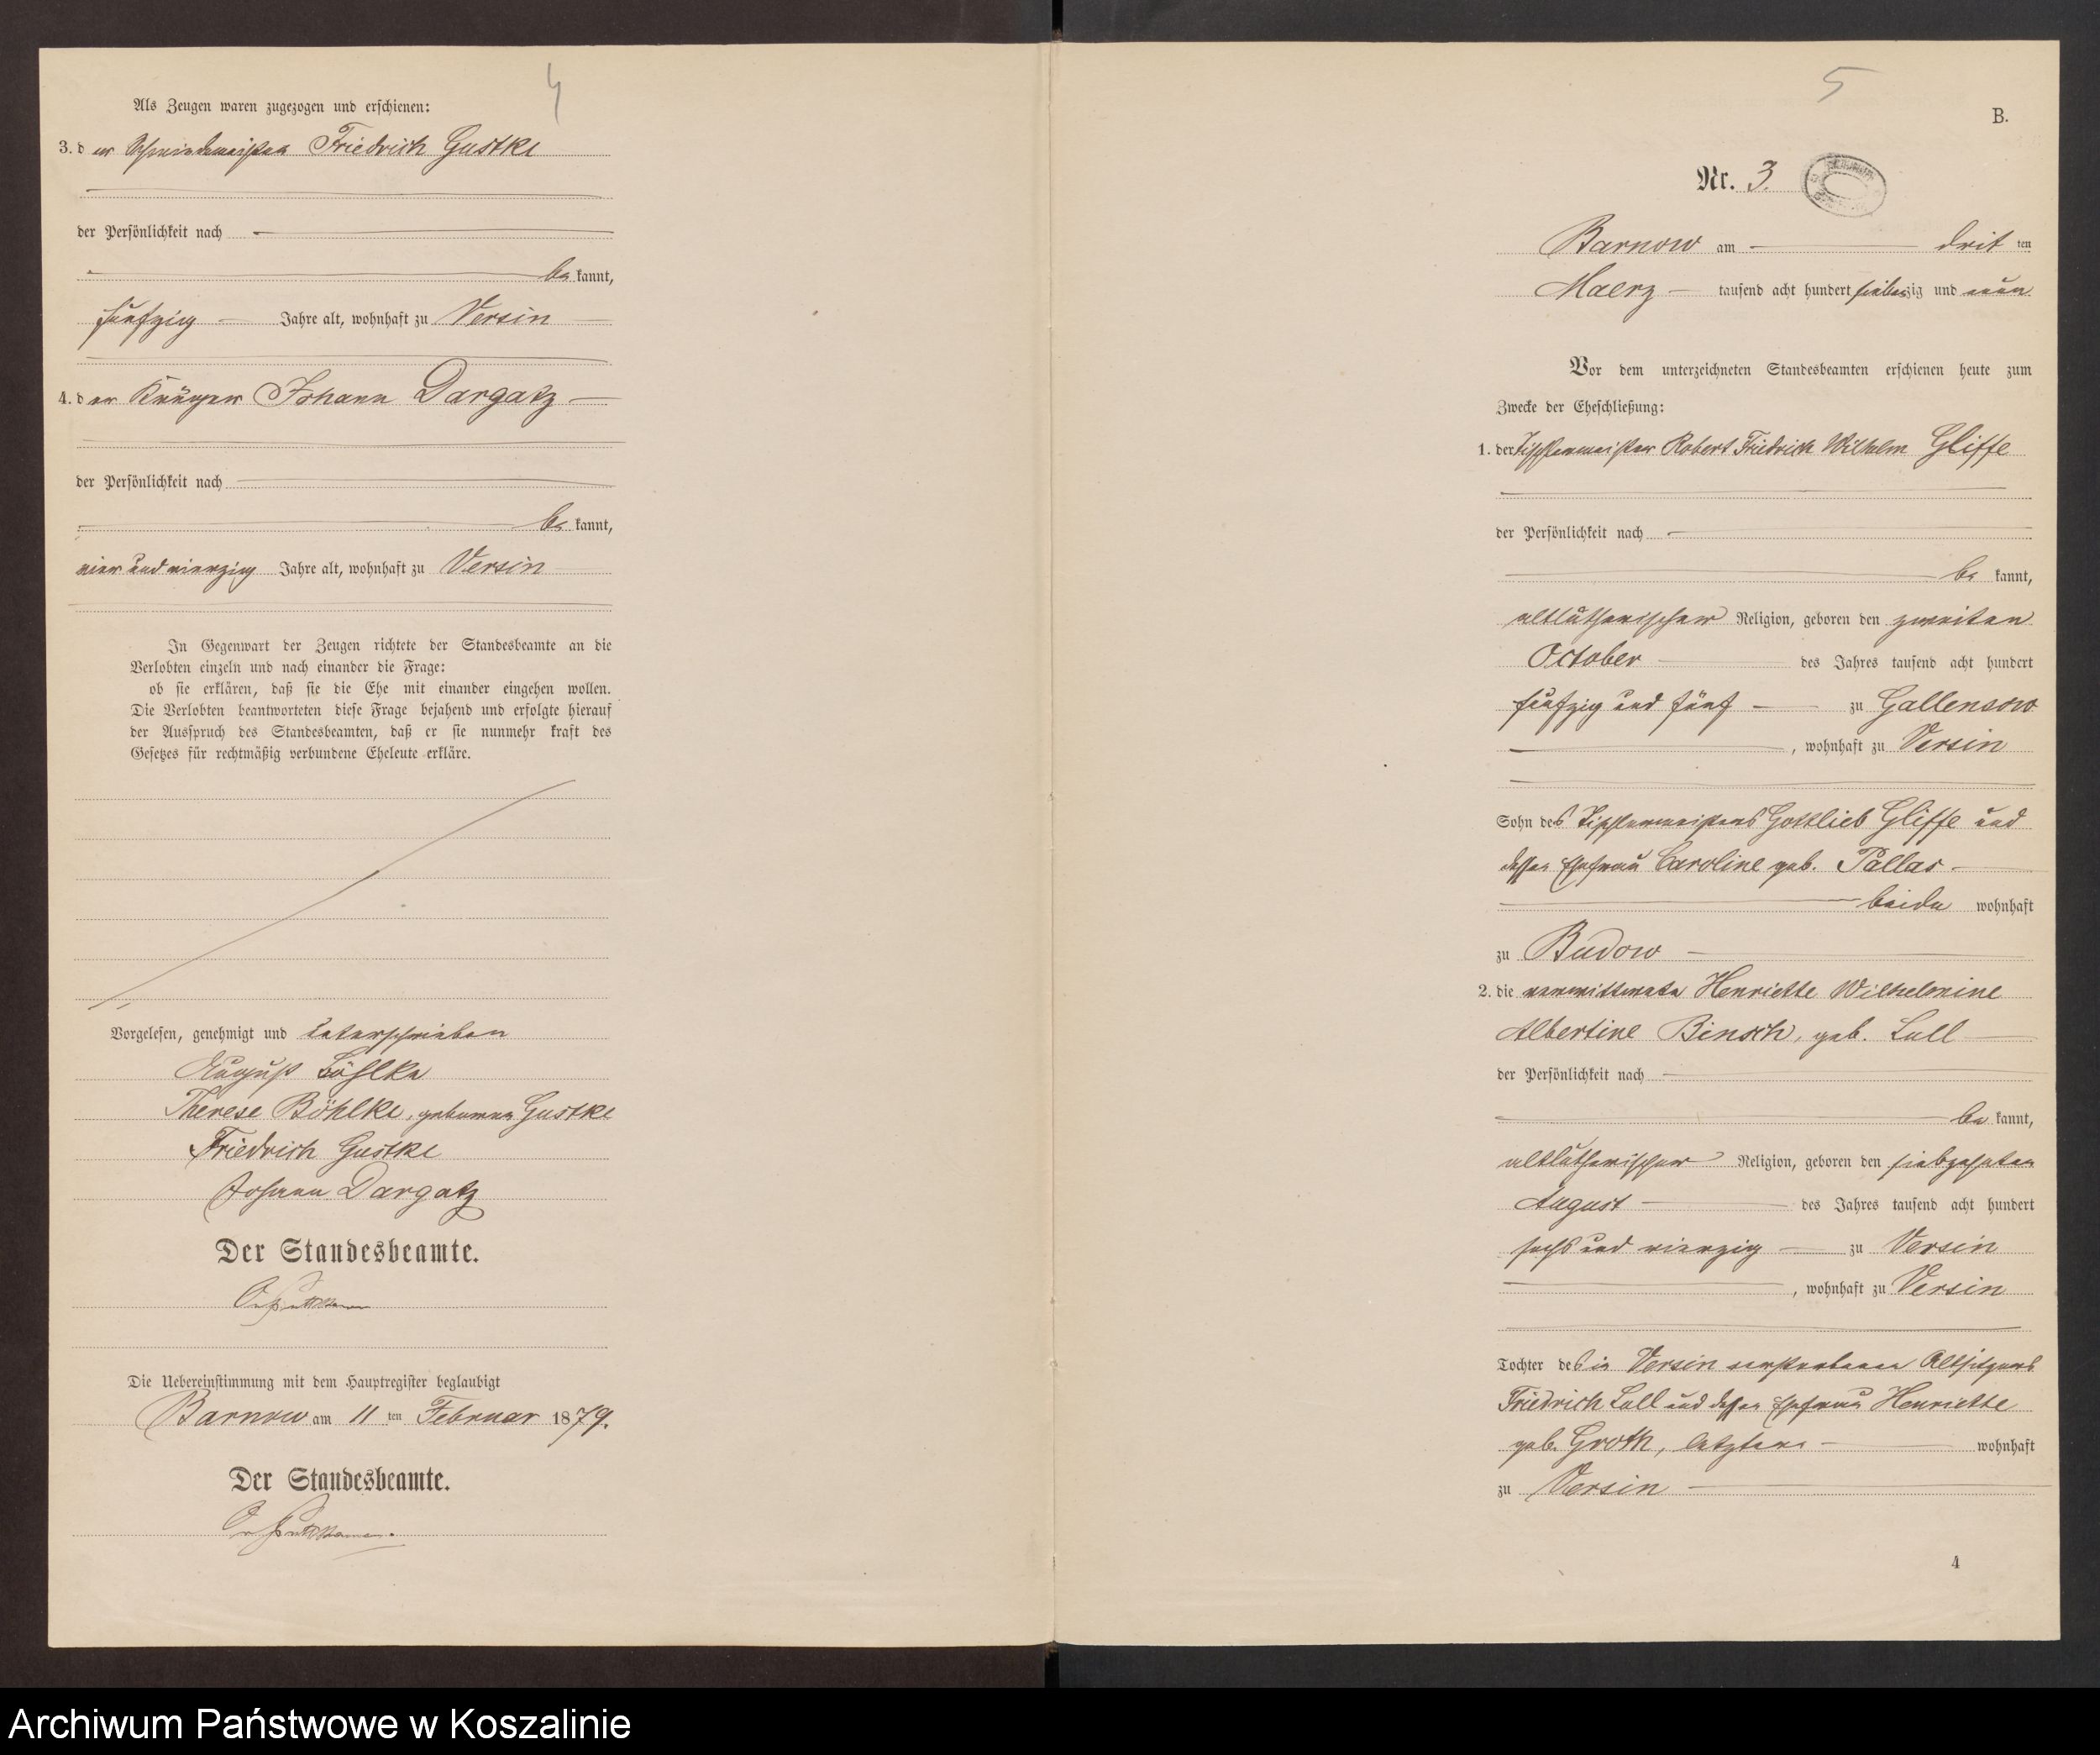 4
Als Zeugen waren zugezogen und erschienen:
3. der Schmiedemeister Friedrich Gustke
der Persönlichkeit nach
bekannt,
fünfzig Jahre alt, wohnhaft zu Versin
4. der Krüger Johann Dargatz
der Persönlichkeit nach
bekannt,
vier und vierzig Jahre alt, wohnhaft zu Versin
In Gegenwart der Zeugen richtete der Standesbeamte an die
Verlobten einzeln und nach einander die Frage:
ob sie erklären, daß sie die Ehe mit einander eingehen wollen.
Die Verlobten beantworteten diese Frage bejahend und erfolgte hierauf
der Ausspruch des Standesbeamten, daß er sie nunmehr kraft des
Gesetzes für rechtmäßig verbundene Eheleute erkläre.
Vorgelesen, genehmigt und unterschrieben
August Böhlke
Therese Böhlke, geborene Gustke
Friedrich Gustke
Johann Dargatz
Der Standesbeamte.
Die Uebereinstimmung mit dem Hauptregister beglaubigt
Barnow am 11 ten Februar 1879.
Der Standesbeamte.
5
B.
Nr. 3.
Barnow am dritten
Maerz tausend acht hundert siebenzig und neun
Vor dem unterzeichneten Standesbeamten erschienen heute zum
Zwecke der Eheschließung:
1. der Tischlermeister Robert Friedrich Wilhelm Gliffe
der Persönlichkeit nach
bekannt,
altlutherischer Religion, geboren den zweiten
October des Jahres tausend acht hundert
fünfzig und fünf zu Gallensow
, wohnhaft zu Versin
Sohn des Tischlermeisters Gottlieb Gliffe und
dessen Ehefrau Caroline geb. Pallas
beide wohnhaft
zu Budow
2. die verwittwete Henriette Wilhelmine
Albertine Binsch, geb. Lull
der Persönlichkeit nach
bekannt,
altlutherischer Religion, geboren den siebzehnten
August des Jahres tausend acht hundert
sechs und vierzig zu Versin
, wohnhaft zu Versin
Tochter des in Versin verstorbenen Altsitzers
Friedrich Lull und dessen Ehefrau Henriette
geb. Groth, letztere wohnhaft
zu Versin
4
Archiwum Państwowe w Koszalinie